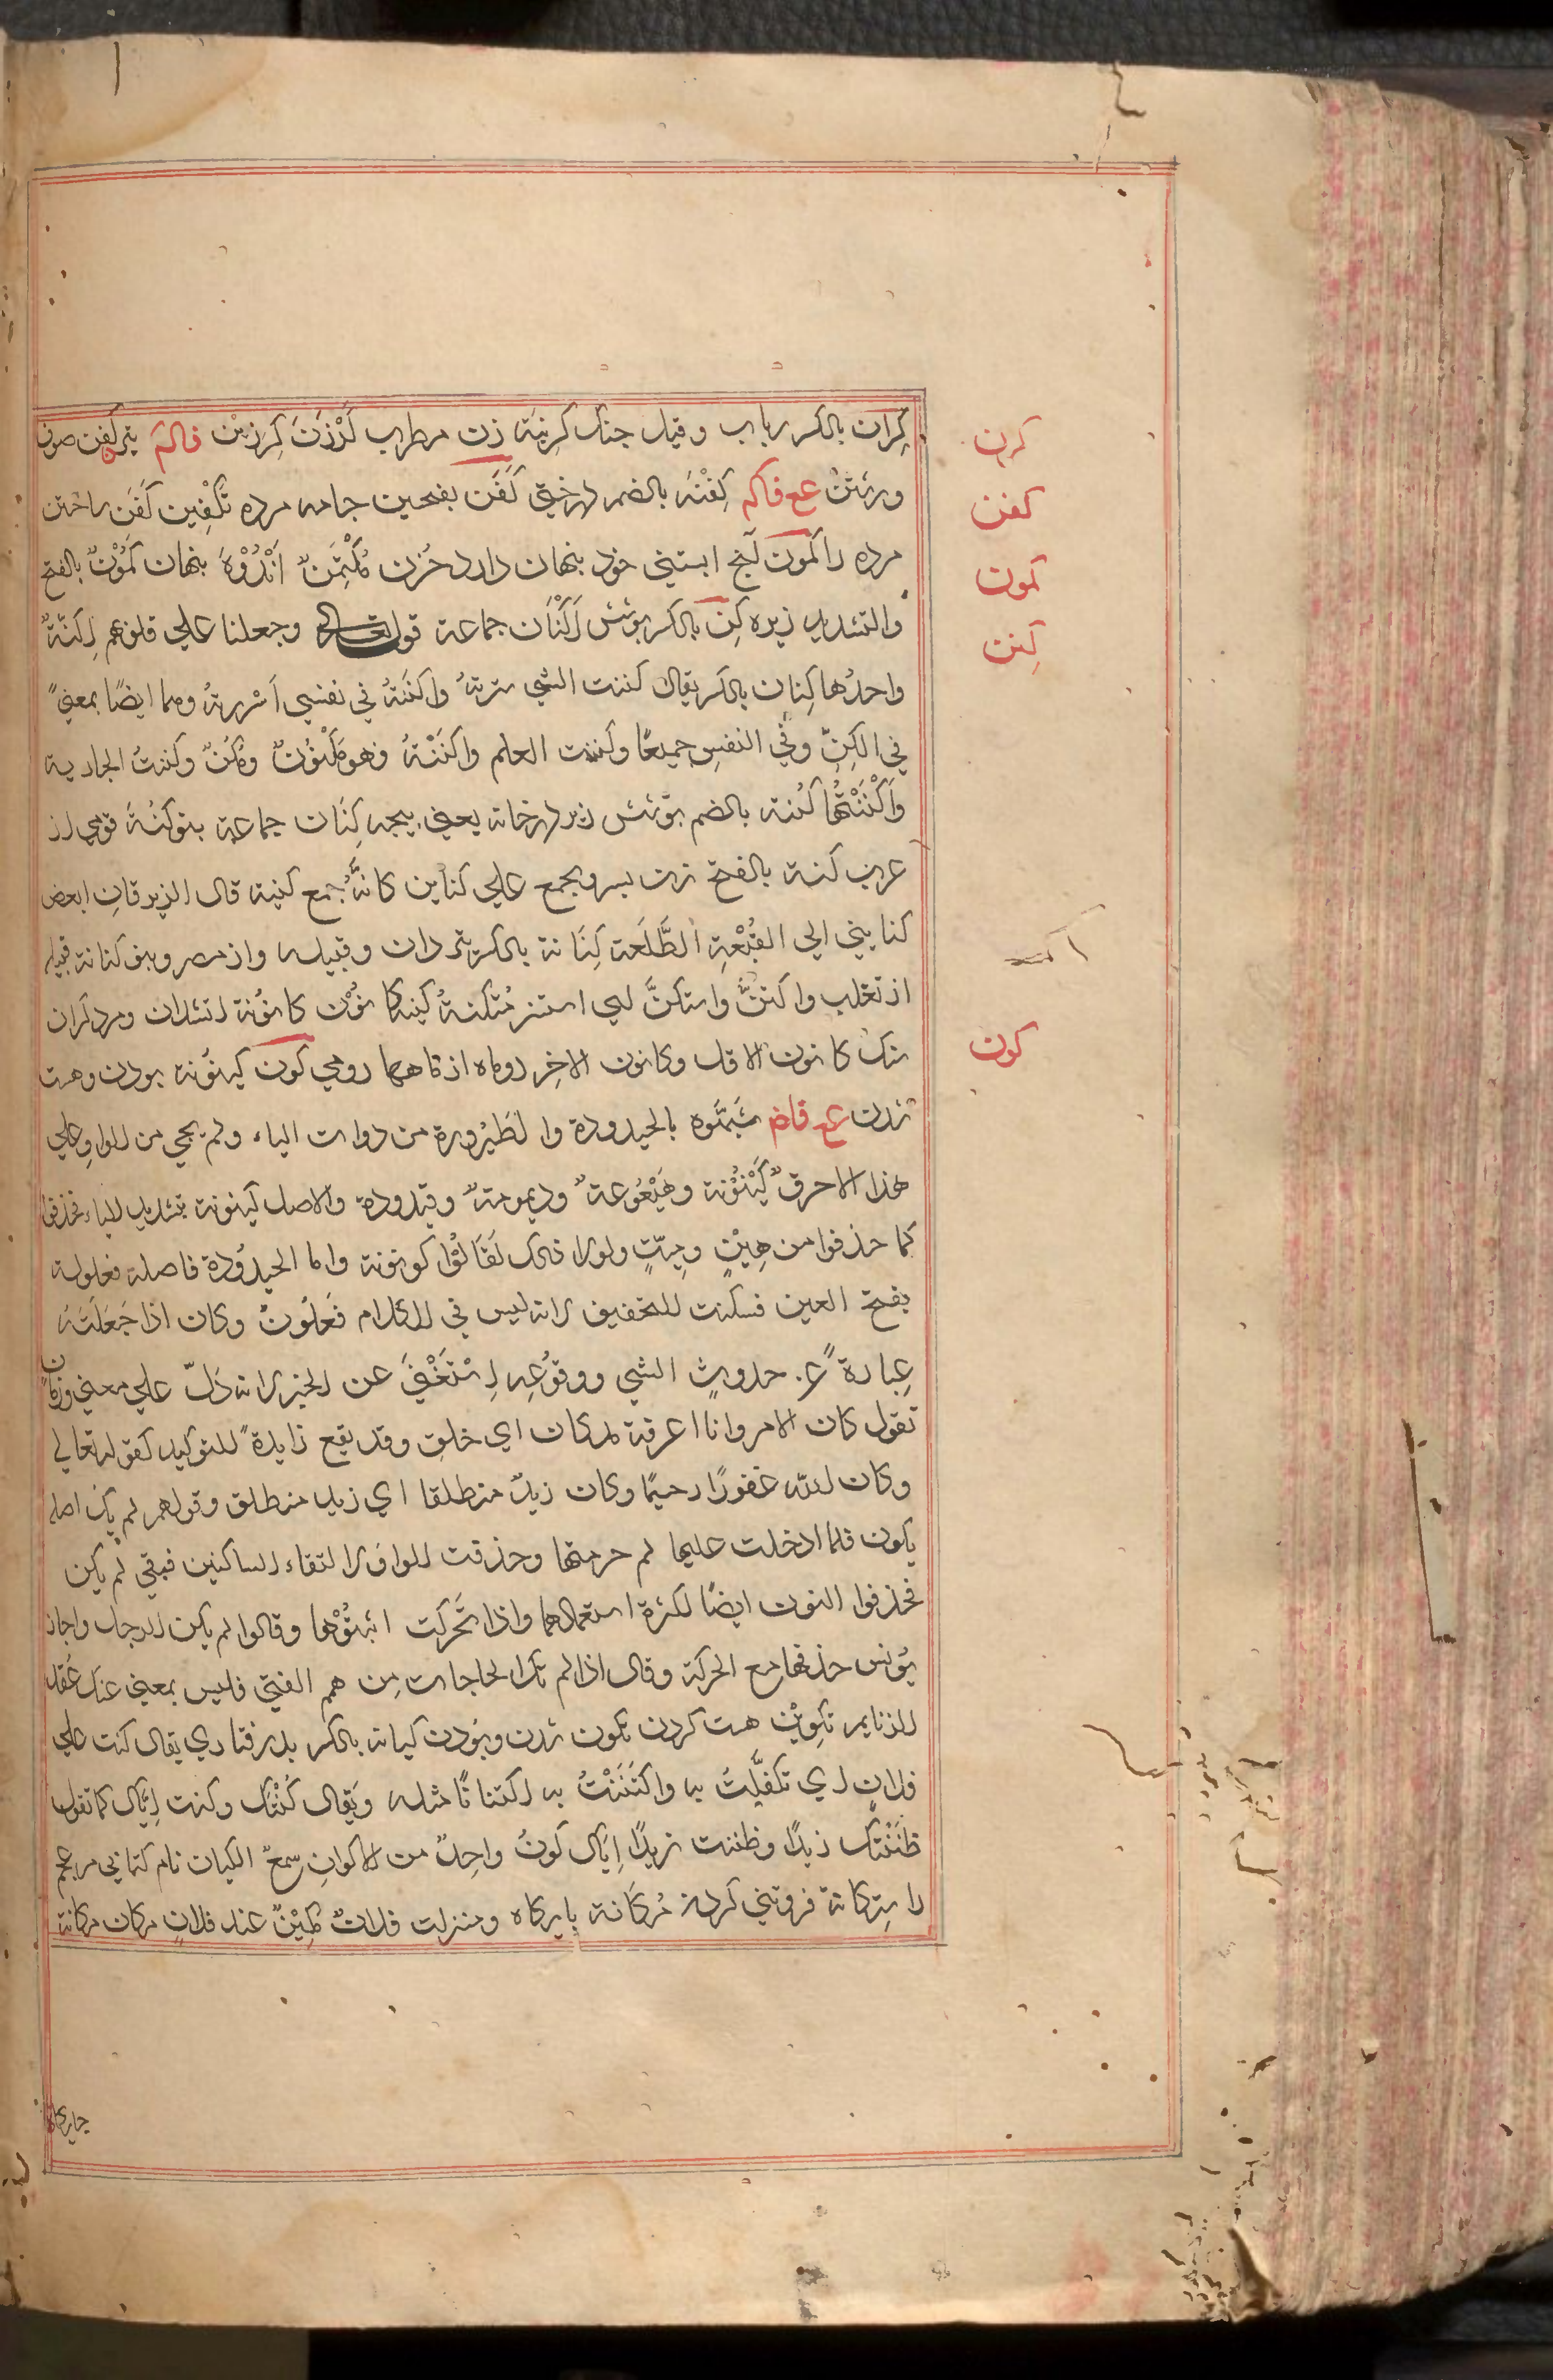 كِران بالكسر رباب وقيل جنك كرِنيَة زن مطرب كَرْزَن كِرزين فاكم كفن صوف
ورشتن ع ف اكم كِفْنَه بالضم درختي كَفَن بفتحين جامه مرده تَكْفِين كَفَن ساختن
مرده را كَمون لَخ ابستني خود بنهان دارد حُزن مُكْتَمَنٌ اَنْدُوْهَ بنهان كَمُّوْنٌ بالفتح
والتشديد زيره كِن بالكسر بوشش اَكْنَان جماعة قوله تعالى وجعلنا علي قلوبهم اَكِنَّةً
واحدُها كِنان بالكسر يقال كننت الشي سترتهُ واكننَتهُ في نفسي اَسْررتهُ وهما ايضًا بمعنيً
في الكِنِّ وفي النفسِ جميعًا وكننت العلم واكننْتهُ فهو مَكنُونٌ ومُكَنٌّ وكننتُ الجارية
وَاَكْنَنْتُهَا كُنة بالضم بوشش زبر درخانه يعني بيجه كِنَان جماعة بنو كُنَة قومي از
عرب كنة بالفتح زن بسر ويجمع علي كناين كانَّهُ جمع كنينة قال الزبرقان ابعض
كنايني الي القُبُعْةِ الطُّلَعَة كِنَانة بالكسر تيردان وقبيله از مضر وبنو كنانة قبيله
از تغلب واكتنَّ واستكنَّ اي استتر مُتكنةُ كينه كانُوْن كانُونة اتشدان ومرد كران
سنك كانون الاول وكانون الاخِر دو ماه از ماهها رومي كون كينُونة بودن وهست
شدن ع ف اض شبَّهُوه بالحيدودة والطَيْرُورة من ذوات الياء ولم يجي من الواو علي
هذا الا احرفٌ كَيْنُوْنة وهَيْعُوعةٌ وديمومةٌ وقيدودة والاصل كينونة بتشديد الياء فحذفوا
كما حذفوا من هيِّنٍ وميِّتٍ ولولا ذلك لقَالُوْا كونونة واما الحيدُودة فاصله فعلولة
بفتح العين فسكنت للتخفيف لانه ليس في الكلام فَعْلُوْلٌ وكان اذا جَعَلْتَهُ
عِبارةً عن حدوثِ الشي ووقُوْعِهِ اِسْتَغْنيَ عن الخبر لانه دَلّ علي معني وزمان
تقول كان الامر وانا اعرفه مذ كان اي خلق وقد يقع زايدةً للتوكيد كقوله تعالي
وكان الله غفورًا رحيمًا وكان زيدٌ منطلقا اي زيد منطلق وقولهم لم يك اصله
يكون فلما ادخلت عليها لم جزمتها وحذفت الواو لالتقاء الساكنين فبقي لم يكن
فحذفوا النون ايضًا لكثرة استعمالها واذا تحركت اثبتُوْها وقالوا لم يكن الرجل واجاز
يُونس حذفها مع الحركة وقال اذا لم تك الحاجات مِن همم الفتي فليس بمغني عنك عُقد
الرتايم تكوِيْن هست كردن تكون شدن وبُودن كيانه بالكسر بذرفتاري يقال كنت علي
فلان اي تكفَّلتُ به واكتَنَنْتُ به اكتنانًا مثله ويُقال كُنْتُك وكنت اِيّاك كما تقول
ظَنَنْتك زيدًا وظننت زيدًا اِيَّاك كونٌ واحِدٌ من الاكوان سمعُ الكيان نام كتابي مر عجم
را استكانة فروتني كردن مُكَانة بايكاه ومنزلت فلانٌ مَكِيْنٌ عند فلان مكان مكانة
كرن
كفن
كمون
كِنن
كون
جايكاه